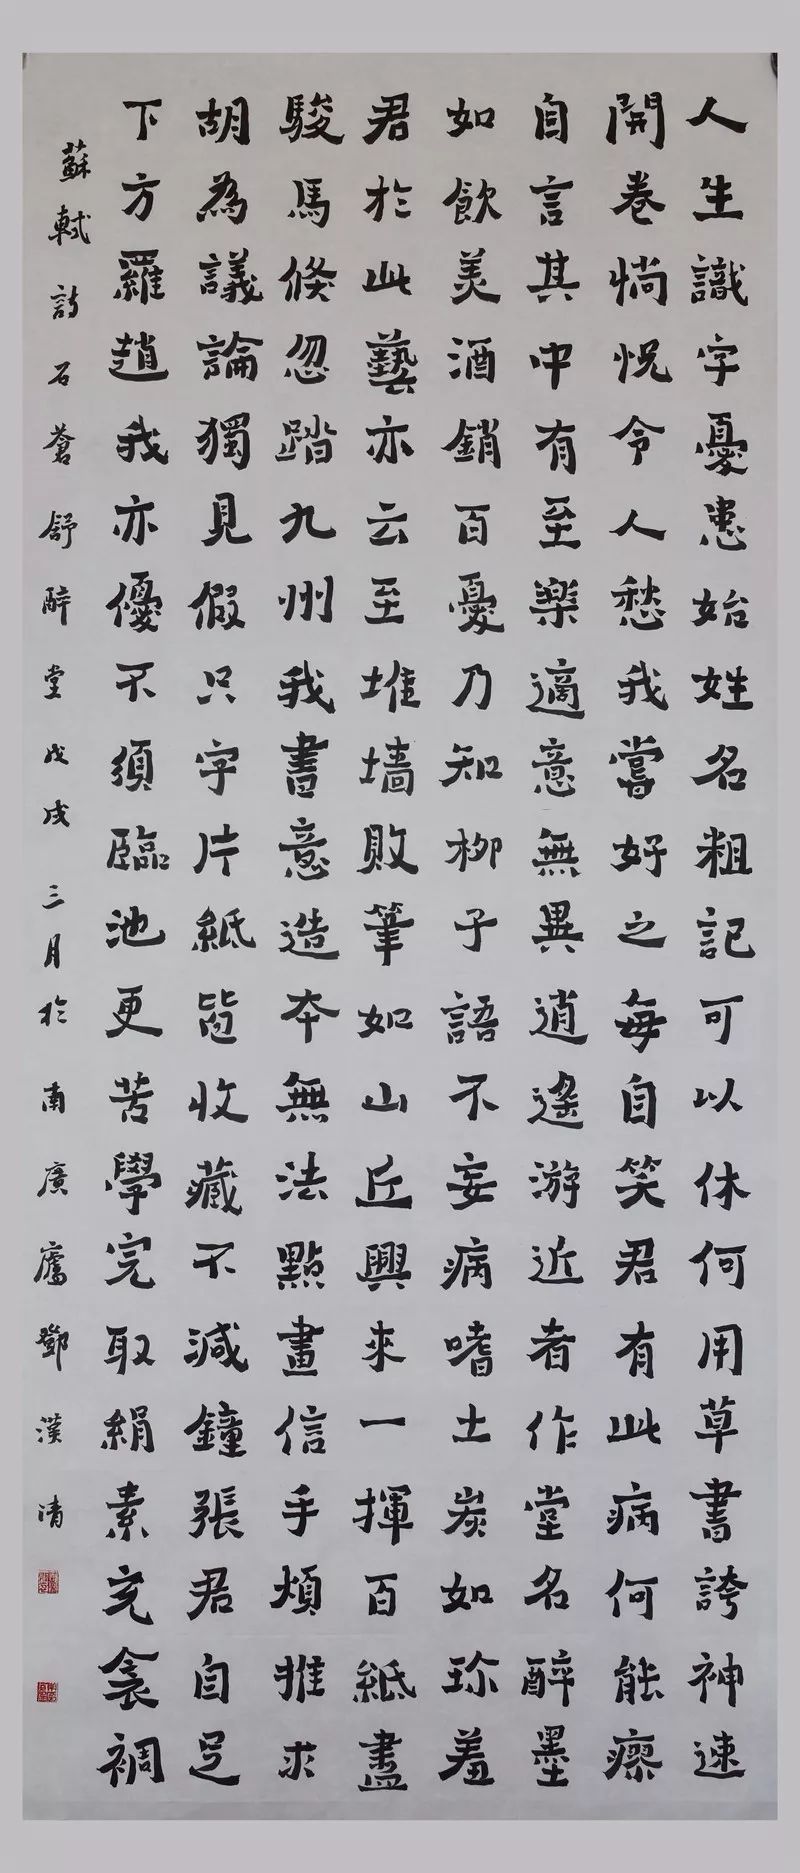 人生識字憂患始姓名粗記可以休何用草書誇神速
開卷惝怳令人愁我嘗好之每自笑君有此病何能瘳
自言其中有至樂適意無異逍遙游近者作堂名醉墨
如飲美酒銷百憂乃知柳子語不妄病嗜土炭如珍羞
君於此藝亦云至堆墙敗筆如山丘興來一揮百紙盡
駿馬倏忽踏九州我書意造本無法點畫信手煩推求
胡為議論獨見假只字片紙皆收藏不減鐘張君自足
下方羅趙我亦優不須臨池更苦學完取絹素充衾裯
蘇軾詩石蒼舒醉堂戊戌三月於南廣廬鄧漢清